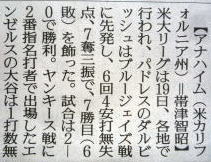 【アナハイム（米カリフ
ォルニア州）＝帯津智昭】
米大リーグは19日、各地で
行われ、パドレスのダルビ
ッシュはブルージェイズ戦
に先発し、6回4安打無失
点、7奪三振で、7勝目（6
敗）を飾った。試合は2―
0で勝利。ヤンキース戦に
2番指名打者で出場したエ
ンゼルスの大谷は1打数無